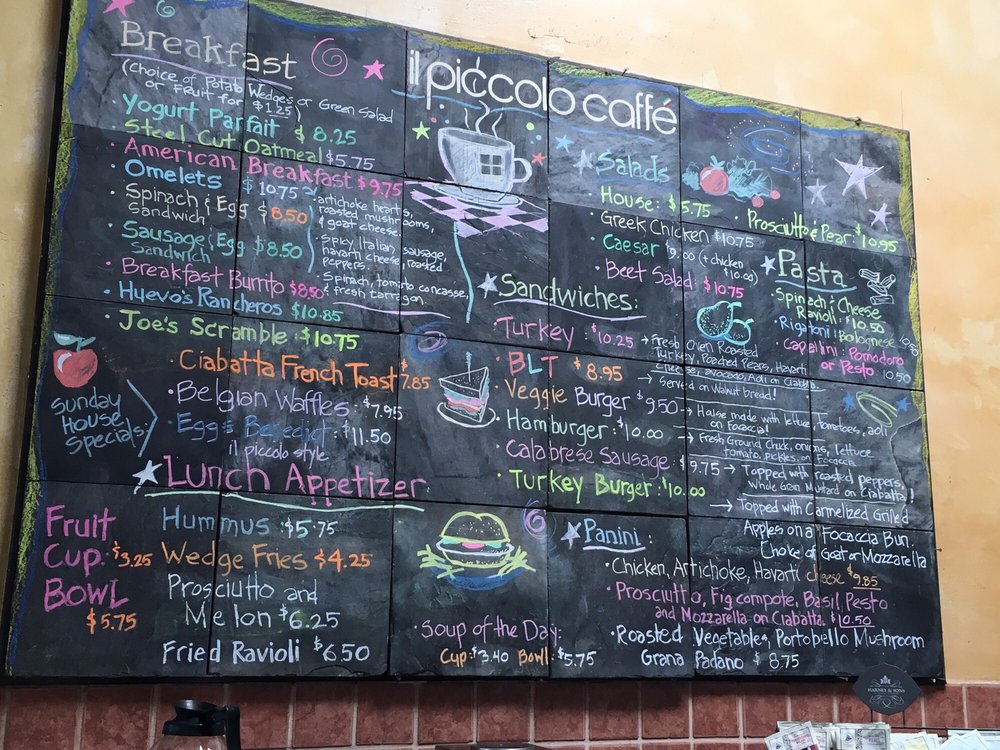 Breakfast
(Choice of Potato Wedges or Green Salad
or Fruit for $1.25)
Yogurt Parfait $8.25
Steel Cut Oatmeal $5.75
American Breakfast $9.75
Omelets $10.75
artichoke hearts,
roasted mushrooms,
& goat cheese.
Spicy Italian sausage,
havarti cheese, roasted
peppers.
Spinach, tomato concasse,
& fresh tarragon.
Spinach & Egg $8.50
Sandwich
Sausage & Egg $8.50
Sandwich
Breakfast Burrito $8.50
Huevo's Rancheros $10.85
Joe's Scramble: $10.75
Sunday
House
Specials:
Ciabatta French Toast $7.85
Belgian Waffles: $7.95
Eggs Benedict: $11.50
il piccolo style
Lunch Appetizer
Fruit
Cup: $3.25
Bowl
$5.75
Hummus: $5.75
Wedge Fries $4.25
Prosciutto and
Melon $6.25
Fried Ravioli $6.50
il piccolo caffé
Soup of the Day:
Cup: $3.40 Bowl: $5.75
Salads
House: $5.75
Greek Chicken $10.75
Caesar $9.00 (+ chicken
$10.00)
Beet Salad: $10.75
Prosciutto & Pear: $10.95
Pasta
Spinach & Cheese
Ravioli: $10.50
Rigatoni: Bolognese
Capallini: Pomodoro
or Pesto 10.50
Sandwiches:
Turkey $10.25 → Fresh Oven Roasted
Turkey, Poached Pears, Havarti
Cheese, avocado, Aoli on Ciabatta.
BLT $8.95 → Served on Walnut bread!
Veggie Burger $9.50 → House made with lettuce, tomatoes, aoli
on Focaccia!
Hamburger: $10.00 → Fresh Ground Chuck, onions, lettuce
tomato, pickles, on Focaccia
Calabrese Sausage: $9.75 → Topped with roasted peppers,
Whole Grain Mustard on Ciabatta!
Turkey Burger: $10.00 → Topped with Carmelized Grilled
Apples on a Focaccia Bun.
Choice of goat or Mozzarella
Panini:
Chicken, Artichoke, Havarti Cheese $9.85
Prosciutto, Fig compote, Basil Pesto
and Mozzarella on Ciabatta. $10.50
Roasted Vegetables, Portobello Mushroom
Grana Padano $8.75
HARNEY & SONS